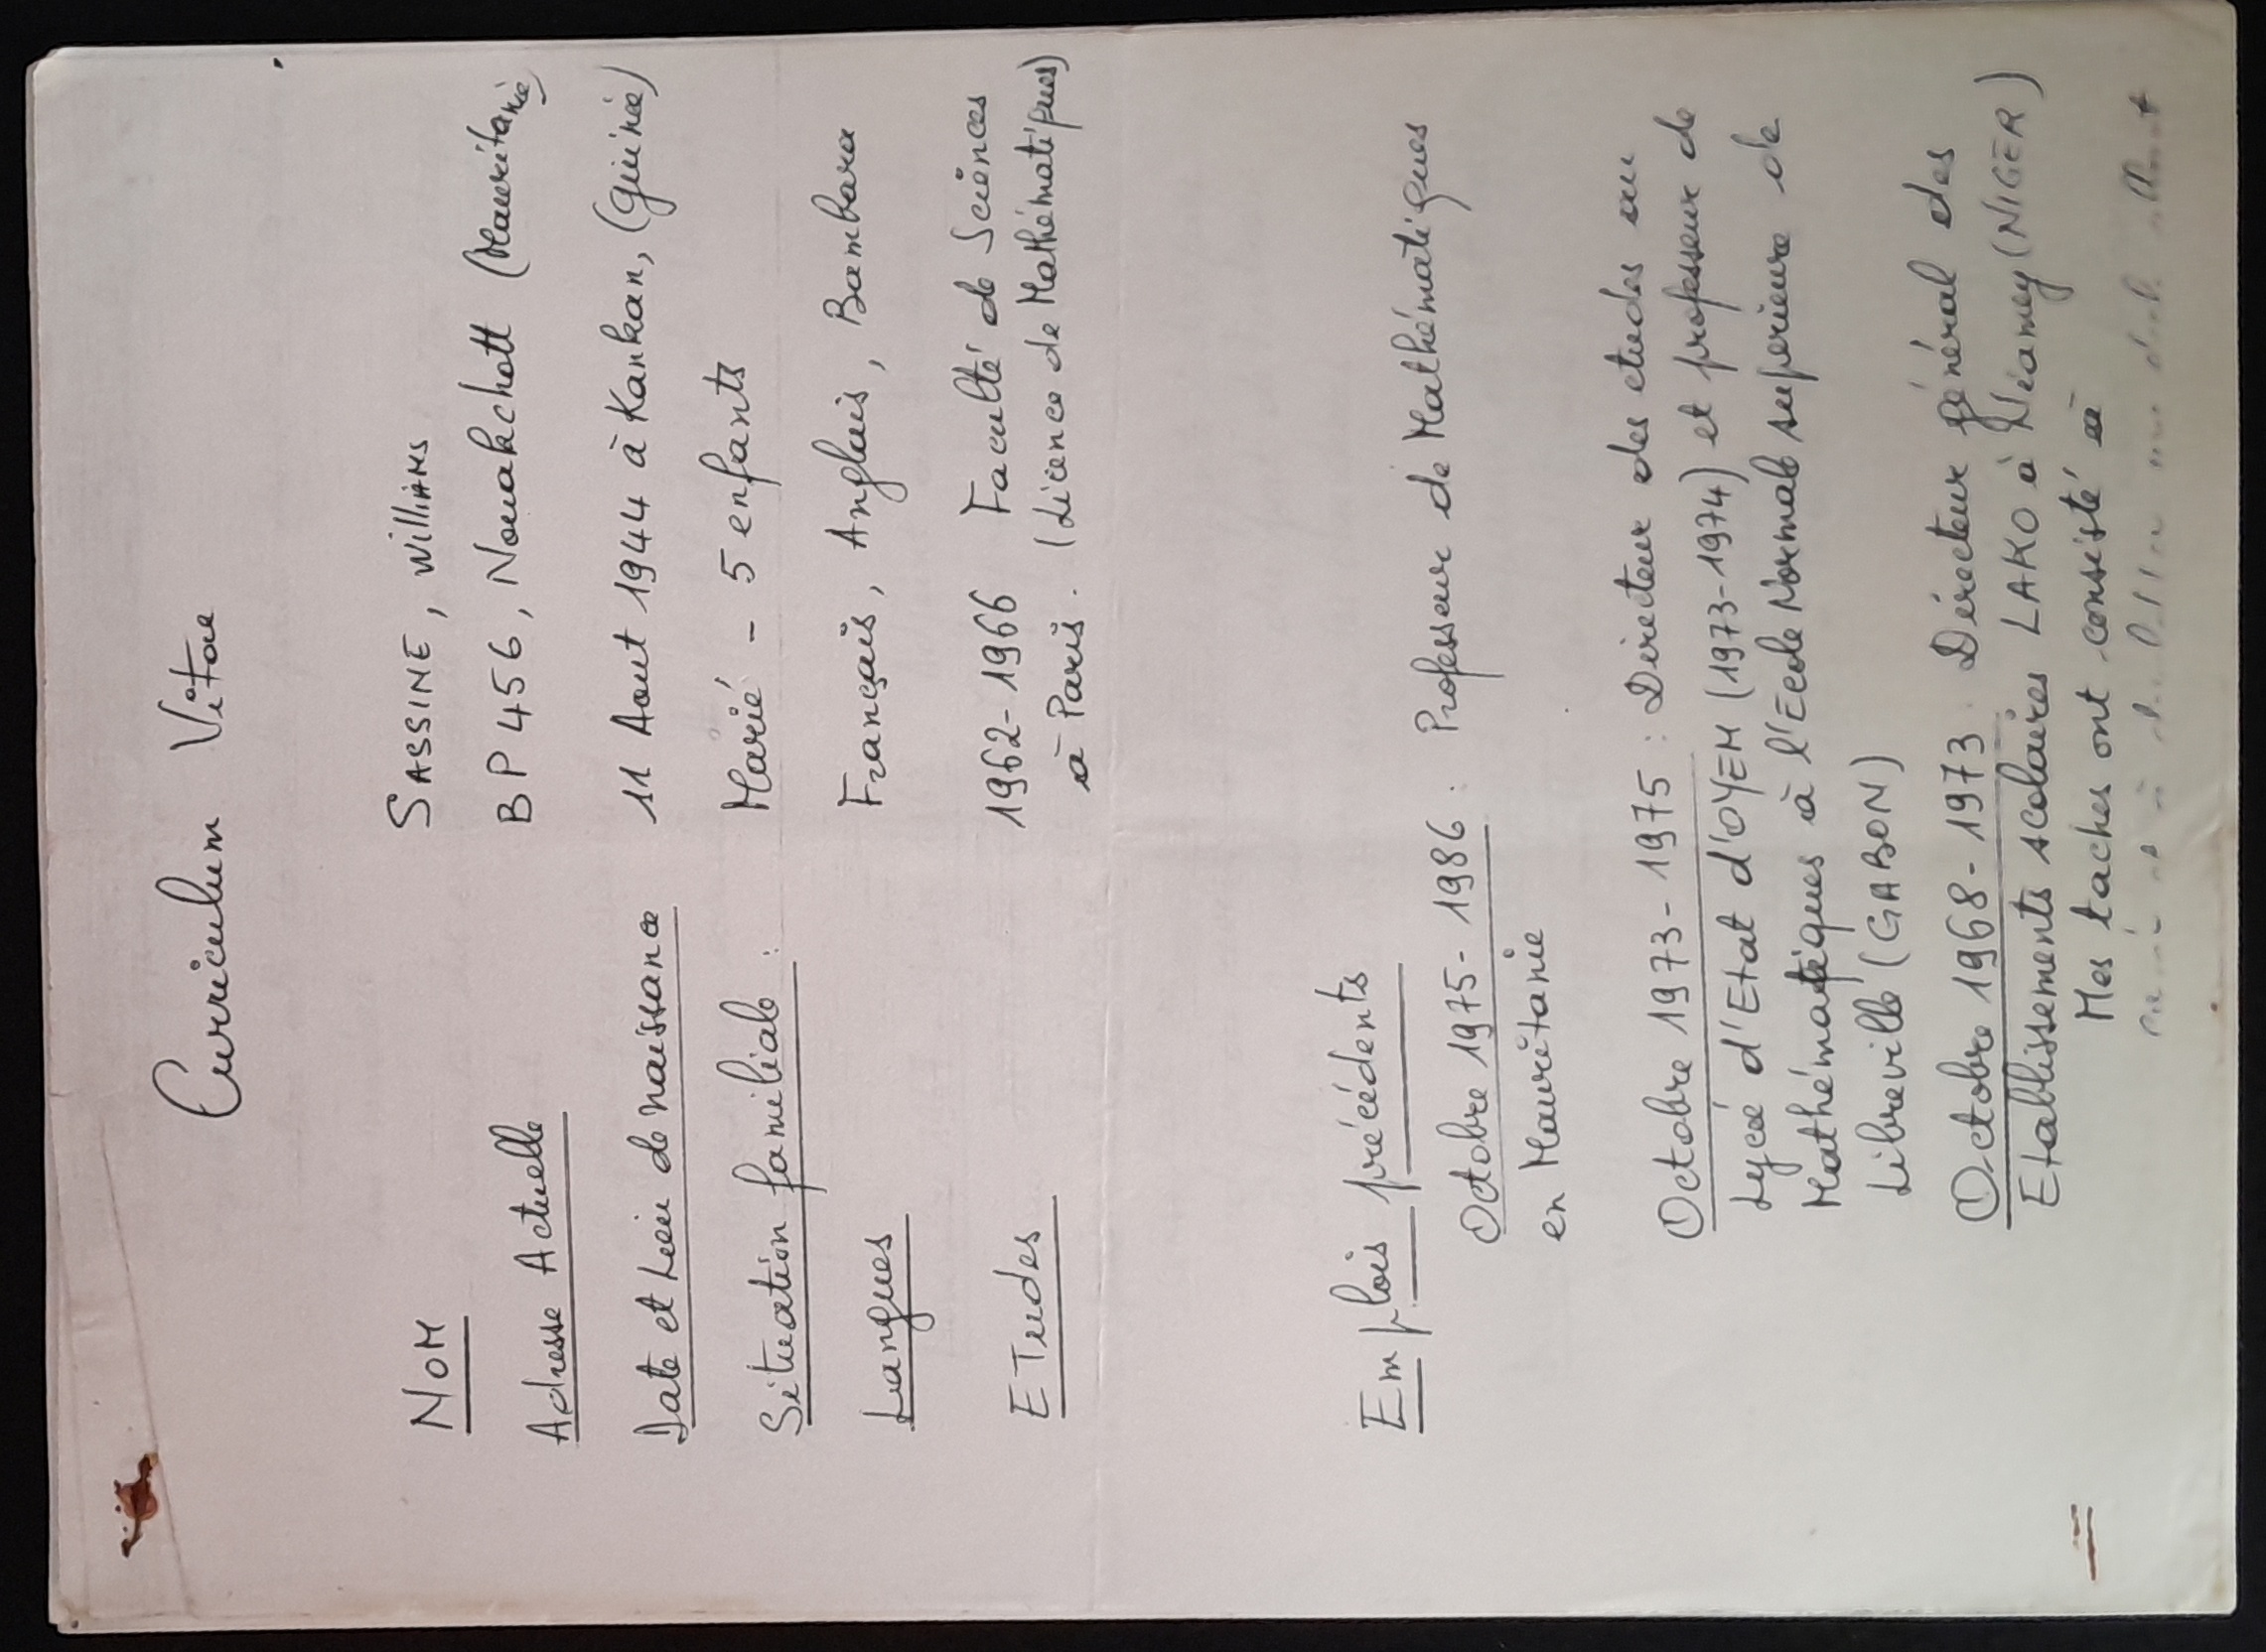 Curriculum Vitae
NOM SASSINE, WilliAMS
Adresse Actuelle BP 456, Nouakchott (Mauritanie)
Date et Lieu de naissance 11 Aout 1944 à Kankan, (Guinée)
Situation familiale : Marié - 5 enfants
Langues Français, Anglais, Bambara
ETudes 1962-1966 Faculté de Sciences
à Paris. (Licence de Mathématiques)
Emplois précédents
Octobre 1975-1986 : Professeur de Mathématiques
en Mauritanie
Octobre 1973-1975 : Directeur des etudes au
Lycée d'Etat d'OYEM (1973-1974) et professeur de
Mathématiques à l'Ecole Normale superieure de
Libreville (GABON)
Octobre 1968-1973 : Directeur général des
Etablissements scolaires LAKO à Niamey (NIGER)
Mes taches ont consisté à